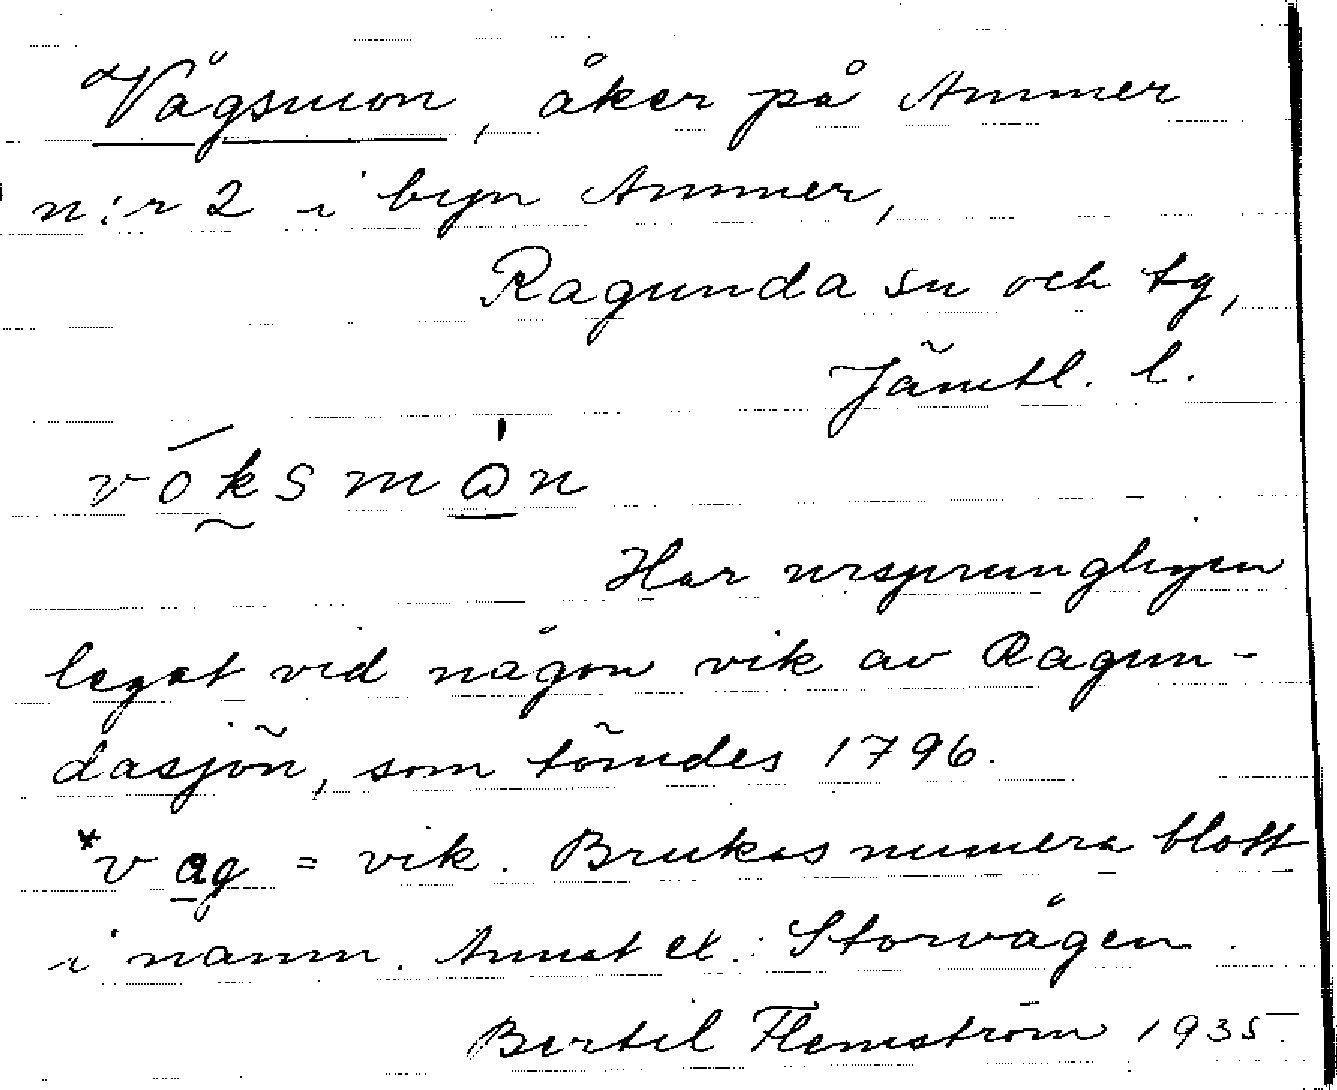 Vågsmon, åker på Ammer
n:r 2 i byn Ammer,
Ragunda sn och tg,
Jämtl. l.
vóksmɷ̀n
Har ursprungligen
legat vid någon vik av Ragun-
dasjön, som tömdes 1796.
*våg = vik. Brukas numera blott
i namn. Annat ex.: Storvågen.
Bertil Flemström 1935.